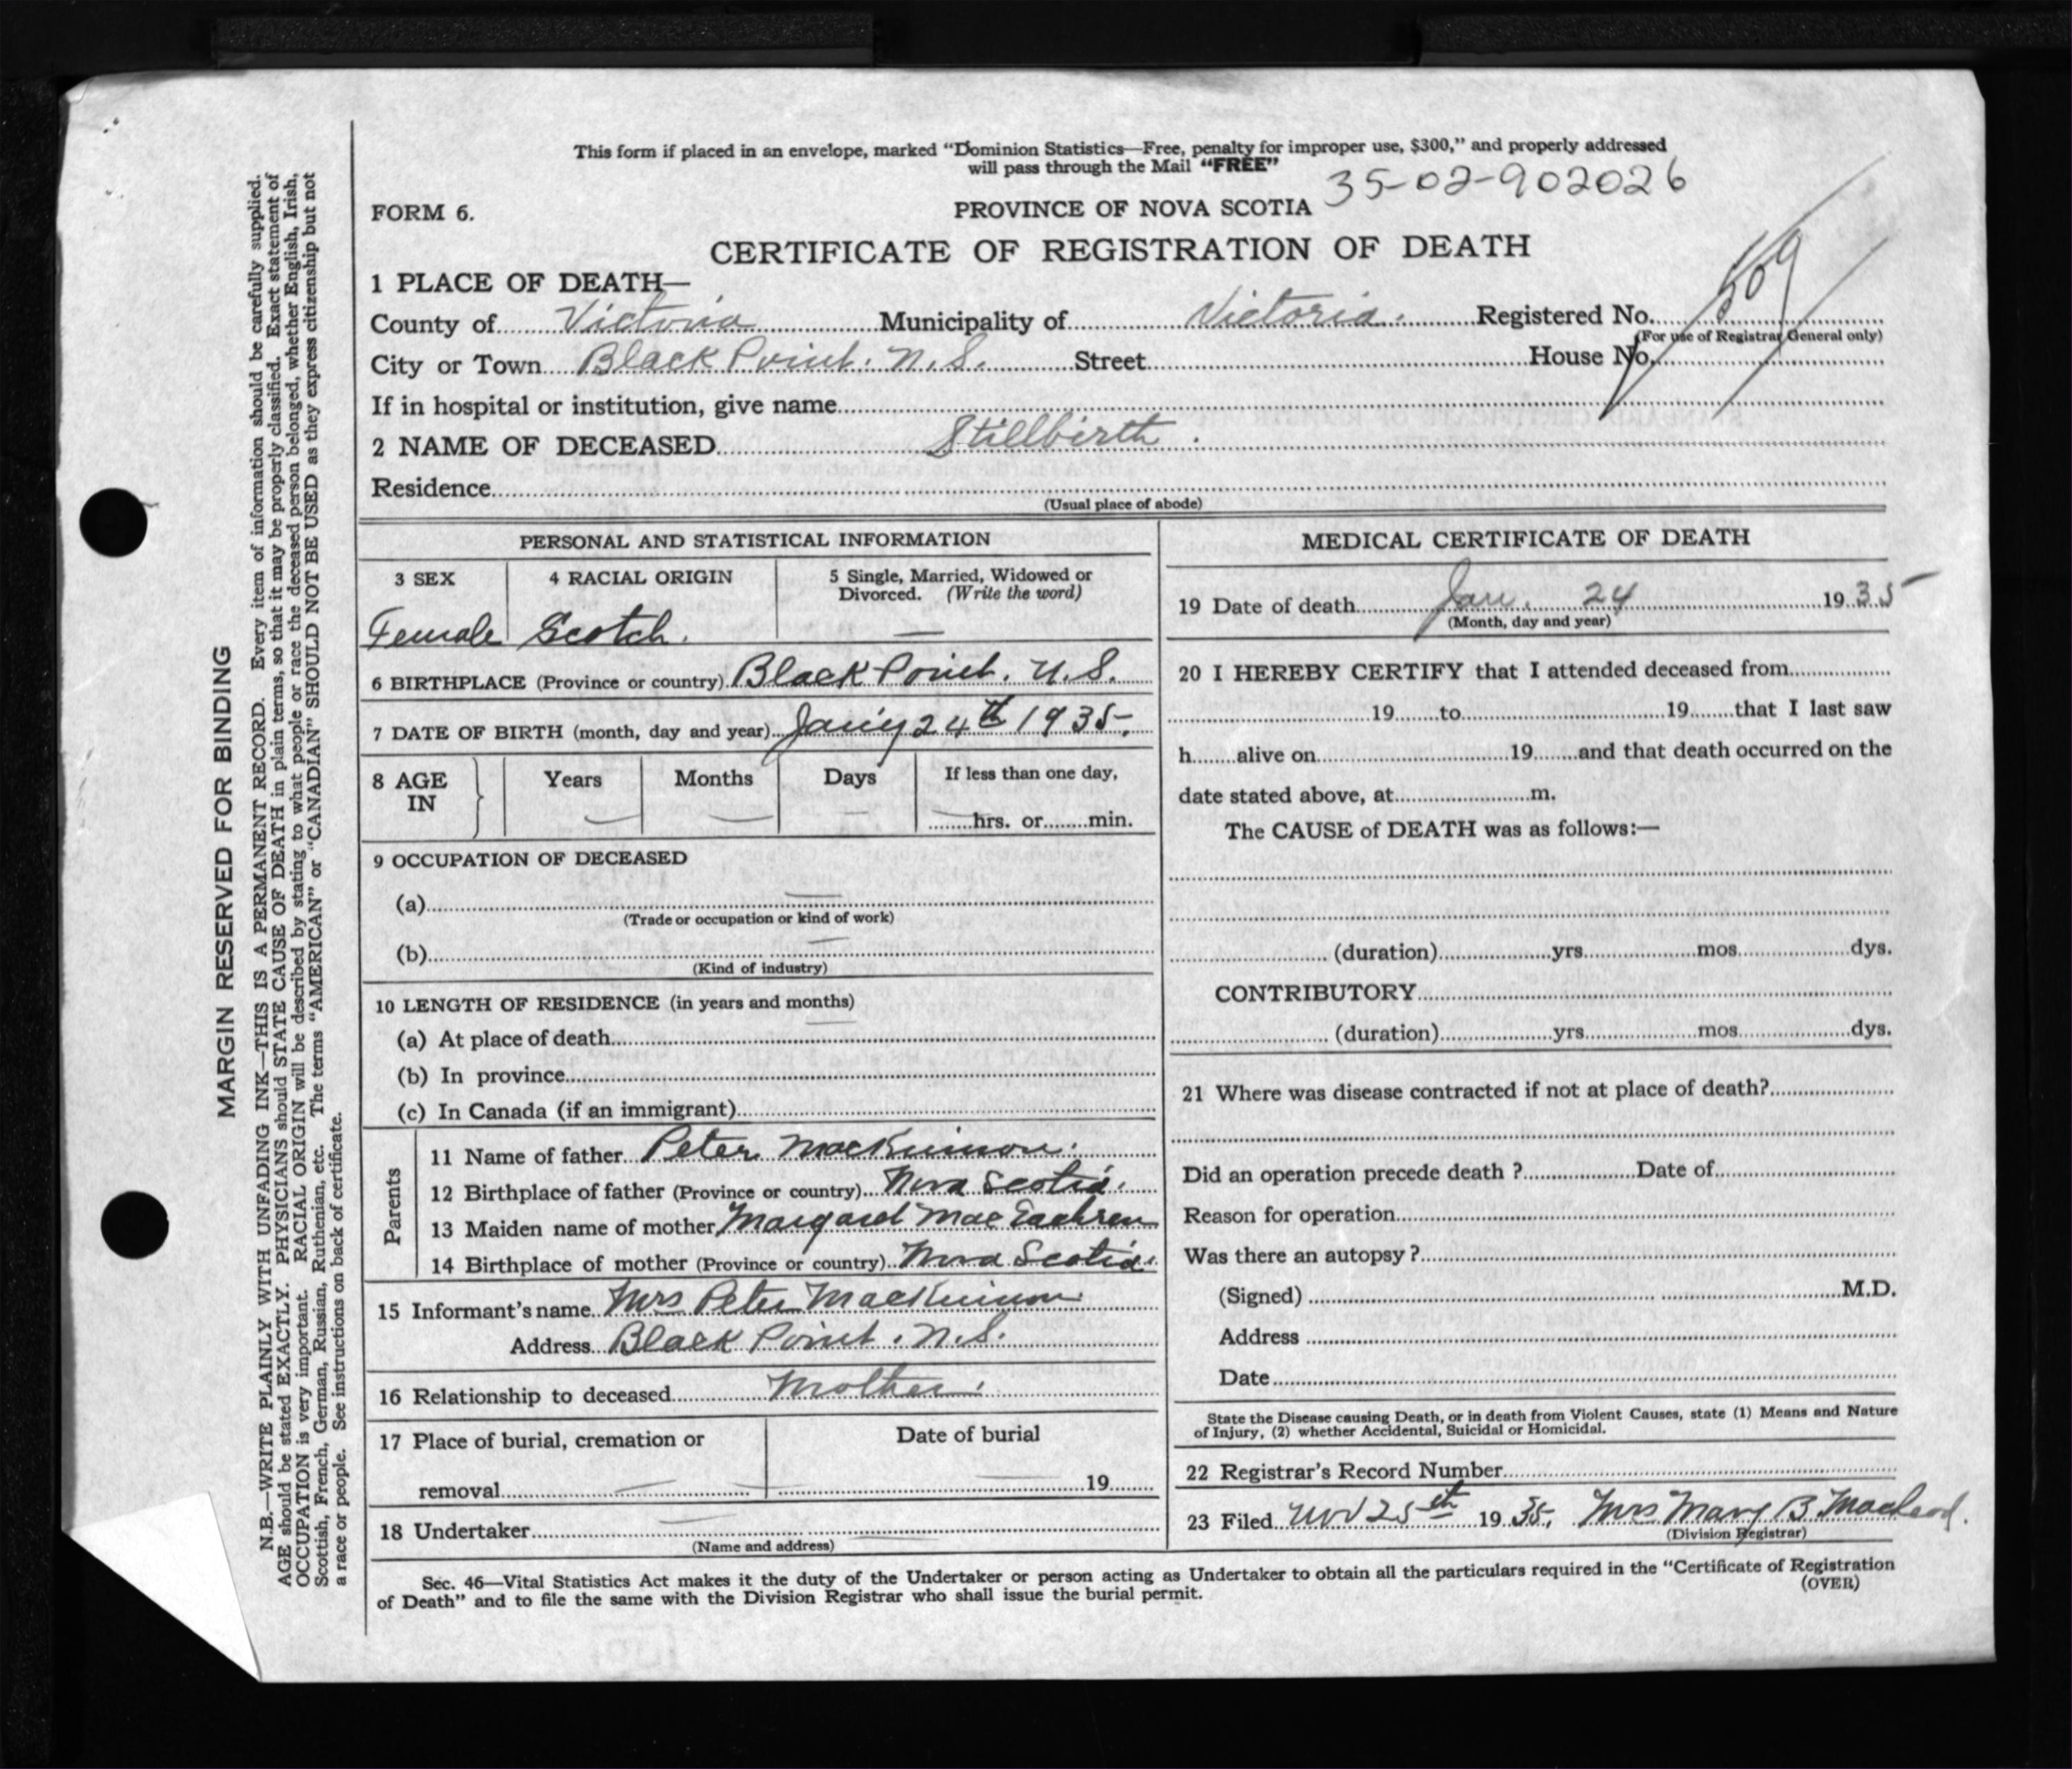 This form if placed in an envelope, marked "Dominion Statistics—Free, penalty for improper use, $300," and properly addressed
will pass through the Mail "FREE"
35-02-902026
FORM 6.
PROVINCE OF NOVA SCOTIA
CERTIFICATE OF REGISTRATION OF DEATH
1 PLACE OF DEATH—
County of Victoria Municipality of Victoria. Registered No.
(For use of Registrar General only)
City or Town Black Point. N.S. Street House No.
If in hospital or institution, give name
2 NAME OF DECEASED Stillbirth.
Residence
(Usual place of abode)
PERSONAL AND STATISTICAL INFORMATION
3 SEX 4 RACIAL ORIGIN 5 Single, Married, Widowed or
Divorced. (Write the word)
Female Scotch. —
6 BIRTHPLACE (Province or country) Black Point. N.S.
7 DATE OF BIRTH (month, day and year) Jan'y 24th 1935.
8 AGE IN Years Months Days If less than one day,
— — — hrs. or min.
9 OCCUPATION OF DECEASED
(a) —
(Trade or occupation or kind of work)
(b) —
(Kind of industry)
10 LENGTH OF RESIDENCE (in years and months)
(a) At place of death —
(b) In province
(c) In Canada (if an immigrant)
Parents
11 Name of father Peter MacKinnon.
12 Birthplace of father (Province or country) Nova Scotia.
13 Maiden name of mother Margaret MacEachren
14 Birthplace of mother (Province or country) Nova Scotia.
15 Informant's name Mrs Peter MacKinnon
Address Black Point. N.S.
16 Relationship to deceased Mother.
17 Place of burial, cremation or Date of burial
removal — — 19
18 Undertaker —
(Name and address)
MEDICAL CERTIFICATE OF DEATH
19 Date of death Jan. 24 1935
(Month, day and year)
20 I HEREBY CERTIFY that I attended deceased from
19 to 19 that I last saw
h alive on 19 and that death occurred on the
date stated above, at m.
The CAUSE of DEATH was as follows:—
(duration) yrs. mos. dys.
CONTRIBUTORY
(duration) yrs. mos. dys.
21 Where was disease contracted if not at place of death?
Did an operation precede death? Date of
Reason for operation
Was there an autopsy?
(Signed) M.D.
Address
Date
State the Disease causing Death, or in death from Violent Causes, state (1) Means and Nature
of Injury, (2) whether Accidental, Suicidal or Homicidal.
22 Registrar's Record Number
23 Filed Nov 25th 1935. Mrs Mary B MacLeod.
(Division Registrar)
Sec. 46—Vital Statistics Act makes it the duty of the Undertaker or person acting as Undertaker to obtain all the particulars required in the "Certificate of Registration
of Death" and to file the same with the Division Registrar who shall issue the burial permit.
(OVER)
MARGIN RESERVED FOR BINDING
N.B.—WRITE PLAINLY WITH UNFADING INK—THIS IS A PERMANENT RECORD. Every item of information should be carefully supplied.
AGE should be stated EXACTLY. PHYSICIANS should STATE CAUSE OF DEATH in plain terms, so that it may be properly classified. Exact statement of
OCCUPATION is very important. RACIAL ORIGIN will be described by stating to what people or race the deceased person belonged, whether English, Irish,
Scottish, French, German, Russian, Ruthenian, etc. The terms "AMERICAN" or "CANADIAN" SHOULD NOT BE USED as they express citizenship but not
a race or people. See instructions on back of certificate.